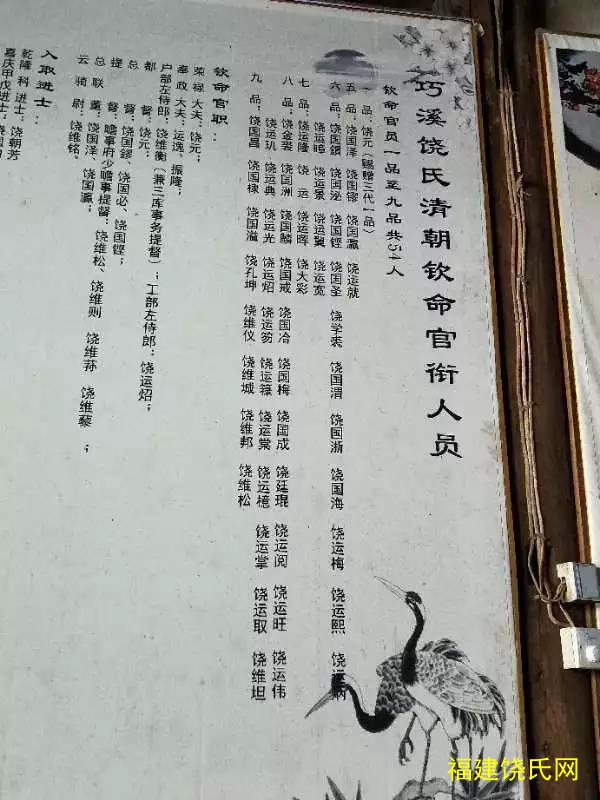 巧溪饶氏清朝钦命官衔人员
钦命官员一品至九品共54人
一品:饶元(赐赠三代一品)
五品:饶国泽 饶国镠 饶国瀛 饶运就
六品:饶国銀 饶国泌 饶国铿 饶国圣 饶学裘 饶国渭 饶国浙 饶国海 饶运梅 饶运熙
饶运暲 饶运景 饶运巽 饶运宽
七品:饶运隆 饶运 饶运晖 饶大彩
八品:饶金裘 饶国洲 饶国麟 饶国戒 饶国冶 饶国梅 饶国成 饶廷琨 饶运阅 饶运旺 饶运伟
饶运玑 饶运典 饶运光 饶运炤 饶运笏 饶运簶 饶运棠 饶运檍 饶运掌 饶运取 饶维坦
九品:饶国昌 饶国棣 饶国溢 饶孔坤 饶维仪 饶维城 饶维邦 饶维松
钦命官职:
荣禄大夫:饶元;
奉政大夫:运逸、振隆;
户部左侍郎:饶维衡(兼三库事务提督);工部左侍郎:饶运炤;
都督:饶元;
总督:饶国镠、饶国必、饶国铿;
提督:瞻事府少瞻事提督:饶维松、饶维则 饶维荪 饶维藜;
总联董:饶国泽、饶国瀛;
云骑尉:饶维铭。
入取进士:
乾隆科进士:饶朝芳
嘉庆甲戊进士:饶国
福建饶氏网